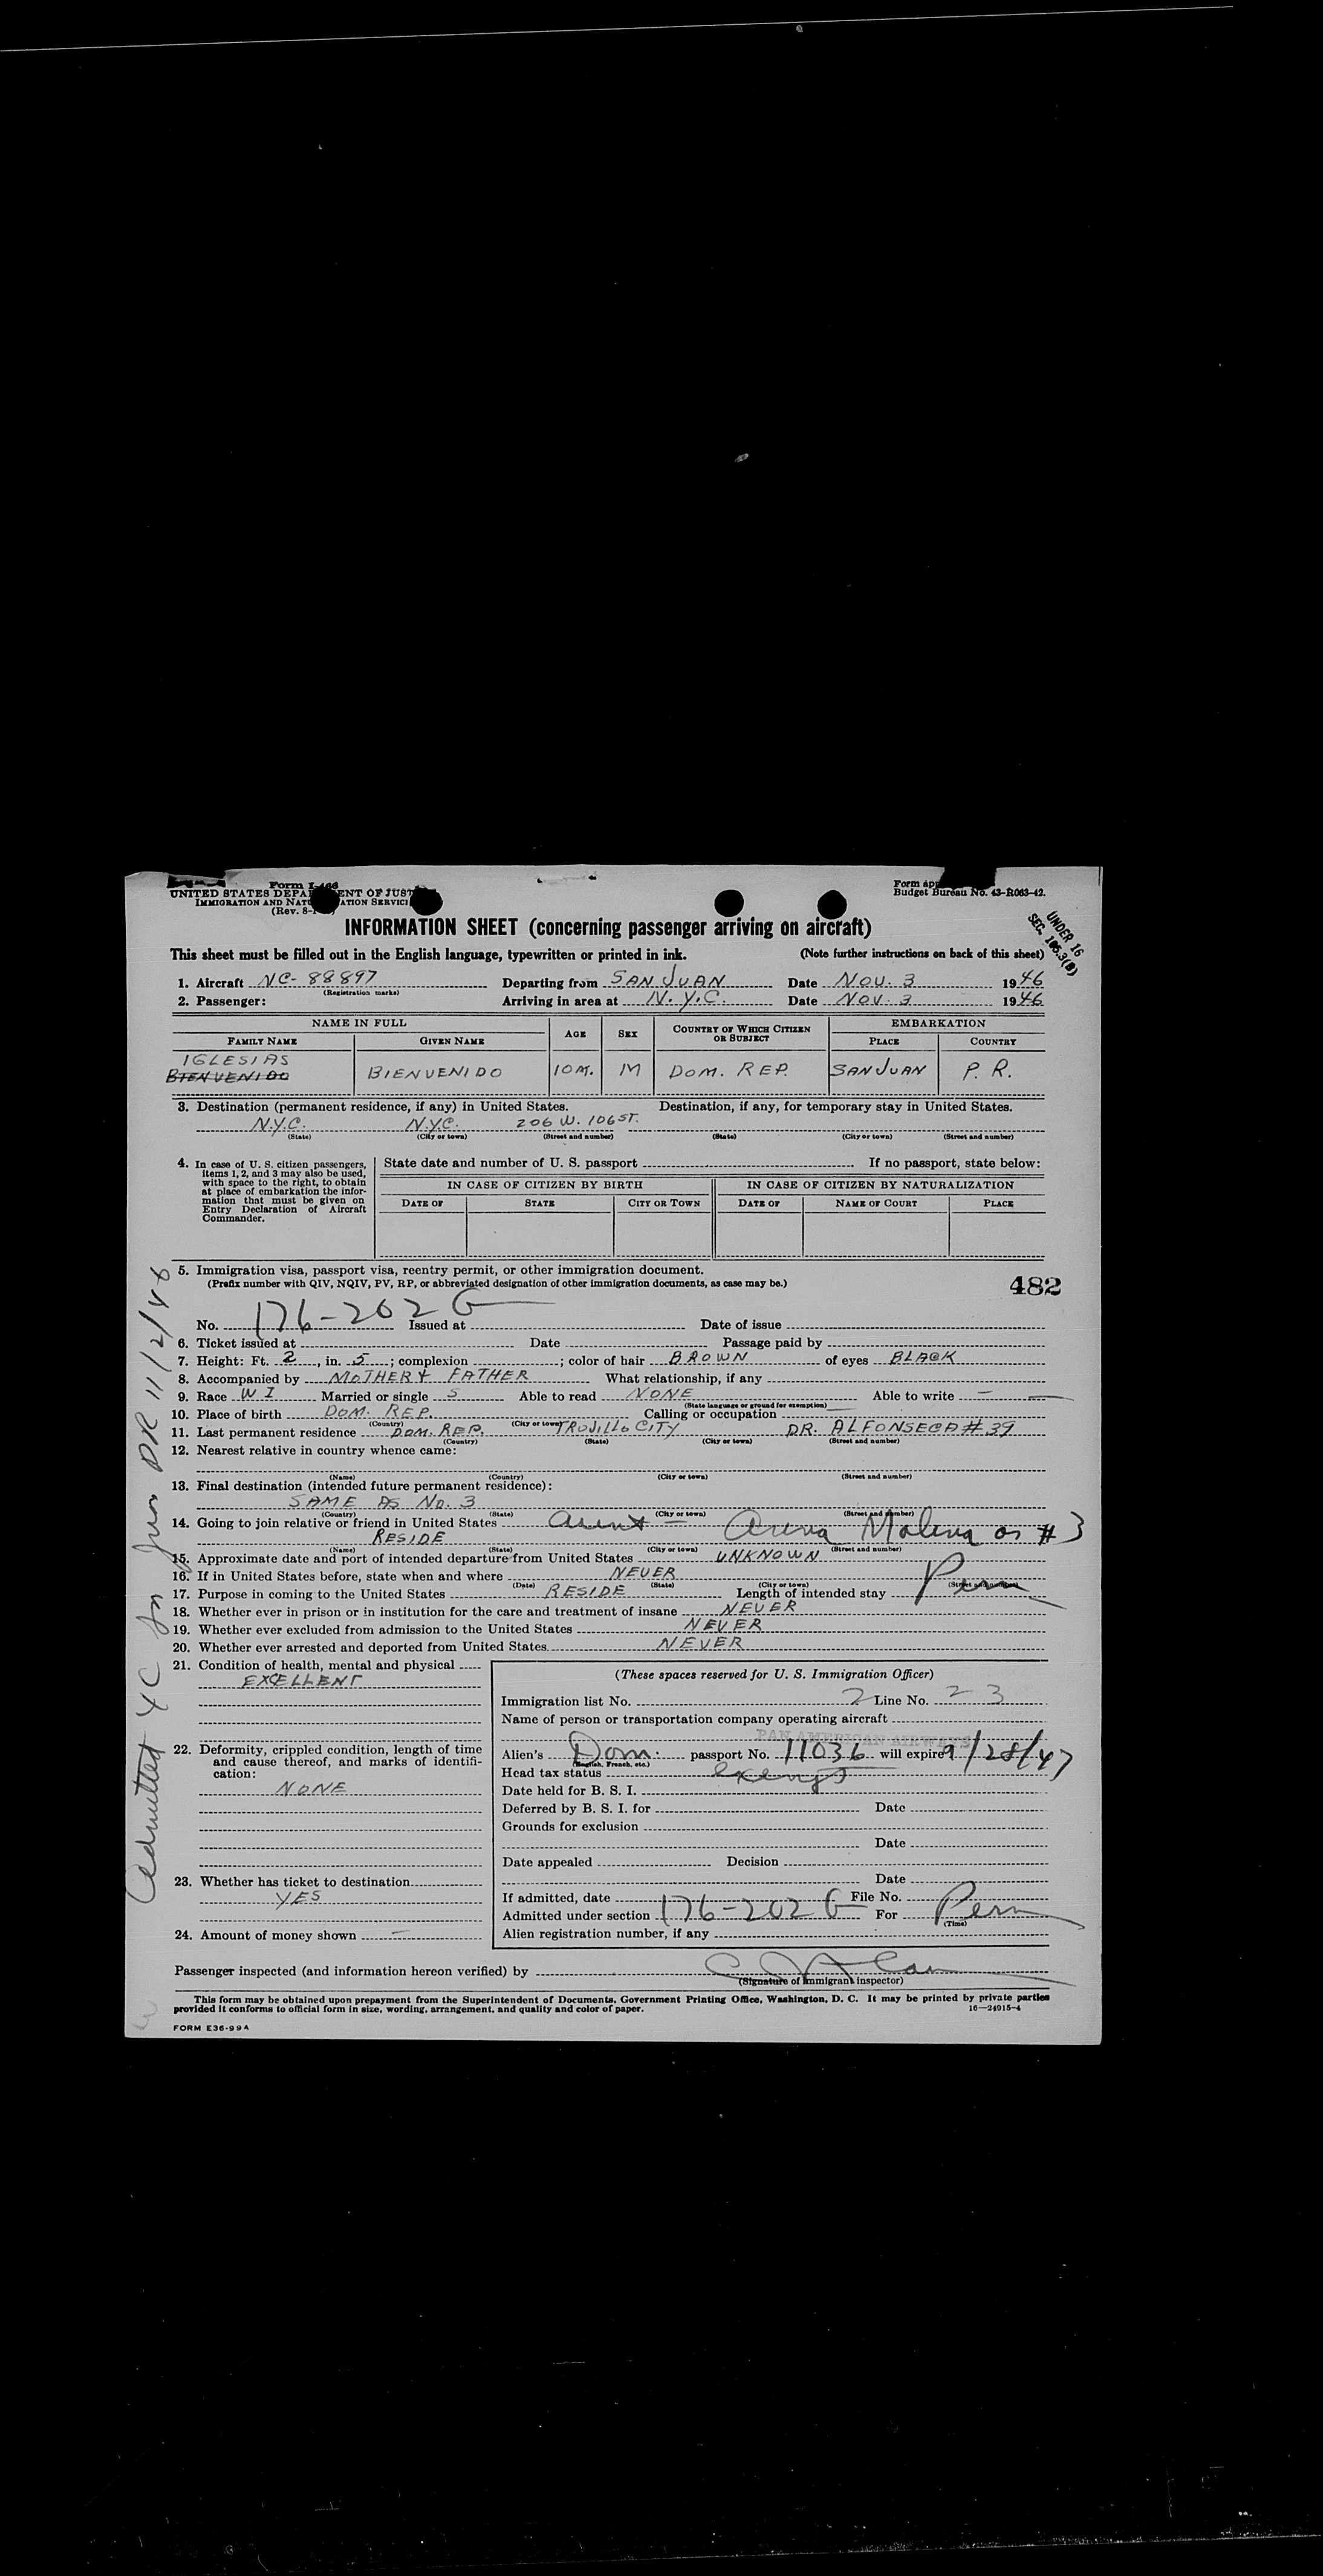 Form I-466
UNITED STATES DEPA ENT OF JUST
IMMIGRATION AND NATU ATION SERVIC
(Rev. 8-
Form app
Budget Bureau No. 43-R063-42.
UNDER 16
SEC. 165.3(B)
INFORMATION SHEET (concerning passenger arriving on aircraft)
This sheet must be filled out in the English language, typewritten or printed in ink. (Note further instructions on back of this sheet)
1. Aircraft NC-88897 Departing from SAN JUAN Date NOV. 3 1946
(Registration marks)
2. Passenger: Arriving in area at N.Y.C. Date NOV. 3 1946
NAME IN FULL AGE SEX COUNTRY OF WHICH CITIZEN OR SUBJECT EMBARKATION
FAMILY NAME GIVEN NAME PLACE COUNTRY
IGLESIAS
BIENVENIDO BIENVENIDO 10M. M DOM. REP. SAN JUAN P. R.
3. Destination (permanent residence, if any) in United States. Destination, if any, for temporary stay in United States.
N.Y.C. N.Y.C. 206 W. 106 ST.
(State) (City or town) (Street and number) (State) (City or town) (Street and number)
4. In case of U. S. citizen passengers, items 1, 2, and 3 may also be used, with space to the right, to obtain at place of embarkation the information that must be given on Entry Declaration of Aircraft Commander.
State date and number of U. S. passport If no passport, state below:
IN CASE OF CITIZEN BY BIRTH IN CASE OF CITIZEN BY NATURALIZATION
DATE OF STATE CITY OR TOWN DATE OF NAME OF COURT PLACE
5. Immigration visa, passport visa, reentry permit, or other immigration document.
(Prefix number with QIV, NQIV, PV, RP, or abbreviated designation of other immigration documents, as case may be.)
482
No. 176-202 G Issued at Date of issue
6. Ticket issued at Date Passage paid by
7. Height: Ft. 2, in. 5; complexion ; color of hair BROWN of eyes BLACK
8. Accompanied by MOTHER & FATHER What relationship, if any
9. Race W I Married or single S Able to read NONE Able to write -
(State language or ground for exemption)
10. Place of birth DOM. REP. Calling or occupation
(Country) (City or town)
11. Last permanent residence DOM. REP. TRUJILLO CITY DR. ALFONSECA # 39
(Country) (State) (City or town) (Street and number)
12. Nearest relative in country whence came:
(Name) (Country) (City or town) (Street and number)
13. Final destination (intended future permanent residence):
SAME AS No. 3
(Country) (State) (City or town) (Street and number)
14. Going to join relative or friend in United States aunt - Molina as # 3
RESIDE
(Name) (State) (City or town) (Street and number)
15. Approximate date and port of intended departure from United States UNKNOWN
16. If in United States before, state when and where NEVER
(Date) (State) (City or town) (Street and number)
17. Purpose in coming to the United States RESIDE Length of intended stay Perm
18. Whether ever in prison or in institution for the care and treatment of insane NEVER
19. Whether ever excluded from admission to the United States NEVER
20. Whether ever arrested and deported from United States. NEVER
21. Condition of health, mental and physical
EXCELLENT
22. Deformity, crippled condition, length of time and cause thereof, and marks of identification:
NONE
23. Whether has ticket to destination
YES
24. Amount of money shown -
(These spaces reserved for U. S. Immigration Officer)
Immigration list No. 2 Line No. 23
Name of person or transportation company operating aircraft
PAN AMERICAN AIRWAYS
Alien's Dom. passport No. 11036 will expire 9/28/47
(English, French, etc.)
Head tax status exempt
Date held for B. S. I.
Deferred by B. S. I. for Date
Grounds for exclusion
Date
Date appealed Decision
Date
If admitted, date File No.
Admitted under section 176-202 G For Perm
(Time)
Alien registration number, if any
Passenger inspected (and information hereon verified) by
(Signature of immigrant inspector)
This form may be obtained upon prepayment from the Superintendent of Documents, Government Printing Office, Washington, D. C. It may be printed by private parties
provided it conforms to official form in size, wording, arrangement, and quality and color of paper. 16—24915-4
FORM E36-99A
Admitted 4C Sn Jun PR 11/2/46